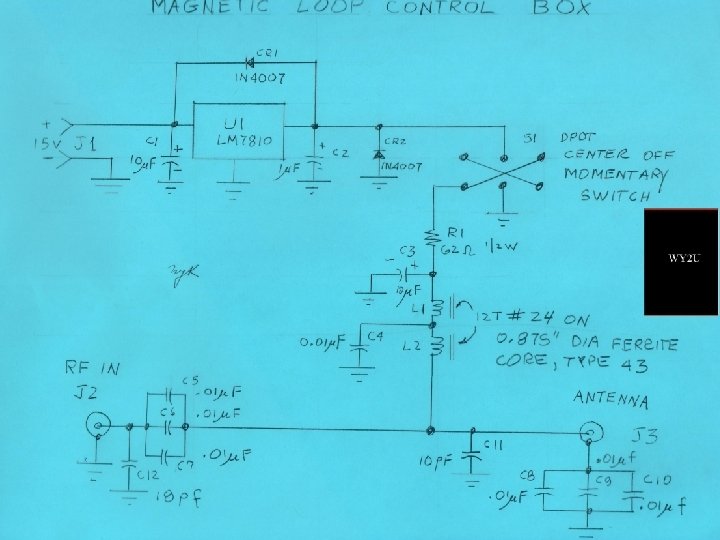 MAGNETIC LOOP CONTROL BOX
CR1
1N4007
+
15V J1
-
C1
+
10µF
-
U1
LM7810
+
C2
1µF
-
CR2
1N4007
S1
DPDT
CENTER OFF
MOMENTARY
SWITCH
WY2U
R1
62Ω 1/2W
C3
- +
10µF
L1
12T # 24 ON
0.875" DIA FERRITE
CORE, TYPE 43
0.01µF
C4
L2
RF IN
J2
C5
.01µF
C6
.01µF
C7
.01µF
C12
18pf
ANTENNA
J3
C11
10PF
.01µf
C8
C9
C10
.01µF
.01µf